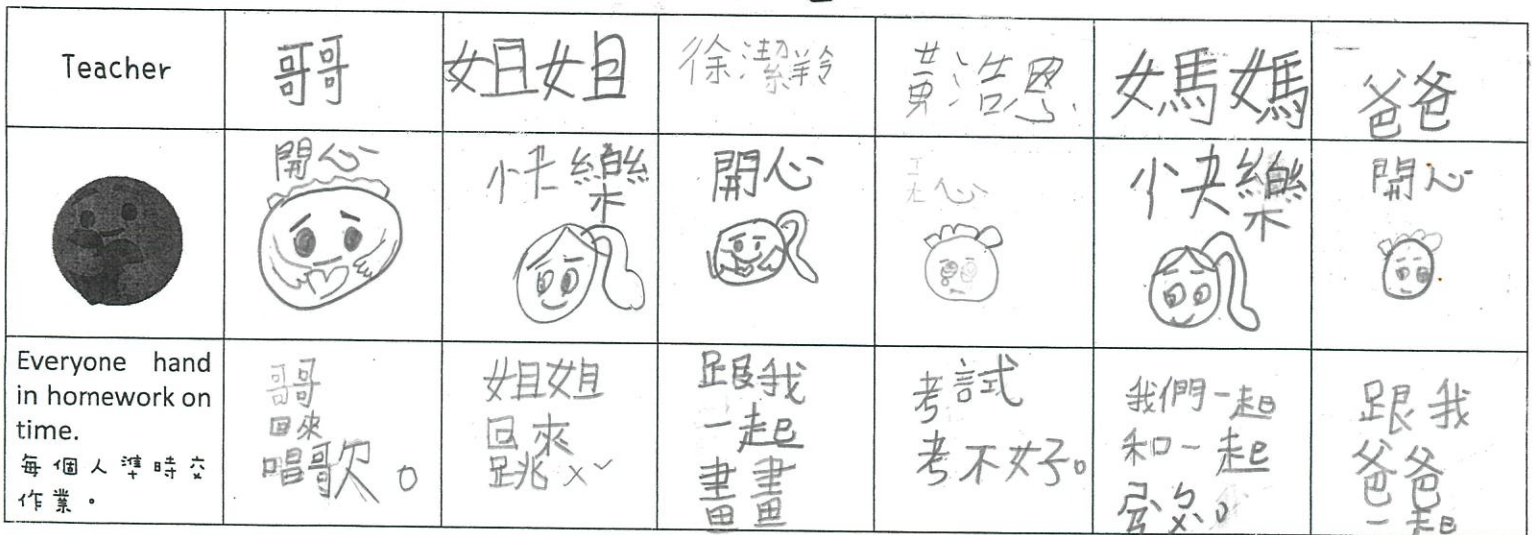 Teacher
哥哥
姐姐
徐潔羚
黃浩恩
媽媽
爸爸
開心
快樂
開心
心
快樂
開心
Everyone hand
in homework on
time.
每個人準時交
作業。
哥哥
回來
唱歌。
姐姐
回來
跳ㄨˇ
跟我
一起
畫畫
考試
考不好。
我們一起
和一起
跟我
爸爸
一起